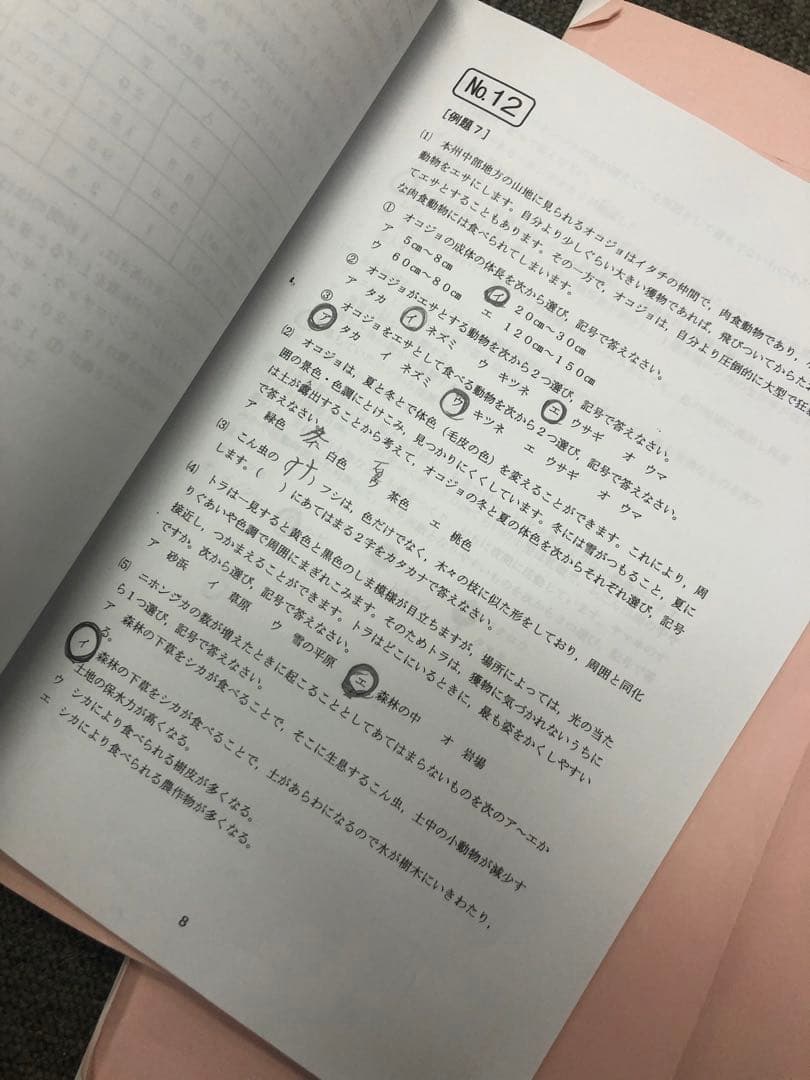 No.12
[例題7]
(1) 本州中部地方の山地に見られるオコジョはイタチの仲間で，肉食動物であり，
動物をエサにします。自分より少しぐらい大きい獲物であれば，飛びついてからだ
てエサとすることもあります。その一方で，オコジョは，自分より圧倒的に大型で
な肉食動物には食べられてしまいます。
① オコジョの成体の体長を次から選び，記号で答えなさい。
ア 5cm～8cm イ 20cm～30cm
ウ 60cm～80cm エ 120cm～150cm
② オコジョがエサとする動物を次から2つ選び，記号で答えなさい。
ア タカ イ ネズミ ウ キツネ エ ウサギ オ ウマ
③ オコジョをエサとして食べる動物を次から2つ選び，記号で答えなさい。
ア タカ イ ネズミ ウ キツネ エ ウサギ オ ウマ
(2) オコジョは，夏と冬とで体色（毛皮の色）を変えることができます。これにより，周
囲の景色・色調にとけこみ，見つかりにくくしています。冬には雪がつもること，夏に
は土が露出することから考えて，オコジョの冬と夏の体色を次からそれぞれ選び，記号
で答えなさい。
ア 緑色 冬 白色 夏 茶色 エ 桃色
(3) こん虫の（ナナ）フシは，色だけでなく，木々の枝に似た形をしており，周囲と同化
します。（ ）にあてはまる2字をカタカナで答えなさい。
(4) トラは一見すると黄色と黒色のしま模様が目立ちますが，場所によっては，光の当た
りぐあいや色調で周囲にまぎれこみます。そのためトラは，獲物に気づかれないうちに
接近し，つかまえることができます。トラはどこにいるときに，最も姿をかくしやすい
ですか。次から選び，記号で答えなさい。
ア 砂浜 イ 草原 ウ 雪の平原 エ 森林の中 オ 岩場
(5) ニホンジカの数が増えたときに起こることとしてあてはまらないものを次のア～エか
ら1つ選び，記号で答えなさい。
ア 森林の下草をシカが食べることで，そこに生息するこん虫，土中の小動物が減少す
る。
イ 森林の下草をシカが食べることで，土があらわになるので水が樹木にいきわたり，
土地の保水力が高くなる。
ウ シカにより食べられる樹皮が多くなる。
エ シカにより食べられる農作物が多くなる。
8